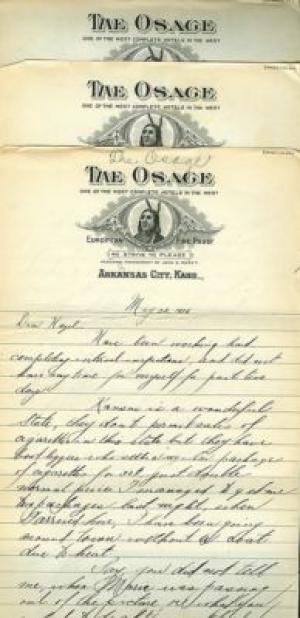 THE OSAGE
ONE OF THE MOST COMPLETE HOTELS IN THE WEST
THE OSAGE
ONE OF THE MOST COMPLETE HOTELS IN THE WEST
The Osage
THE OSAGE
ONE OF THE MOST COMPLETE HOTELS IN THE WEST
EUROPEAN FIRE PROOF
WE STRIVE TO PLEASE
ARKANSAS CITY, KANS.,
May
Dear Hazel
Have been working hard
completing and did not
have any time for myself for past two
days
Kansas is a wonderful
State, they dont permit sales of
cigarettes in this state but they have
bootleggers who sell package
of cigarettes for just double
normal price I managed to get me
two packages last night, when
I arrived here, I have been going
around town without a coat
due to heat.
Say, you did not tell
me, when Marie was passing
out of the picture, or why you